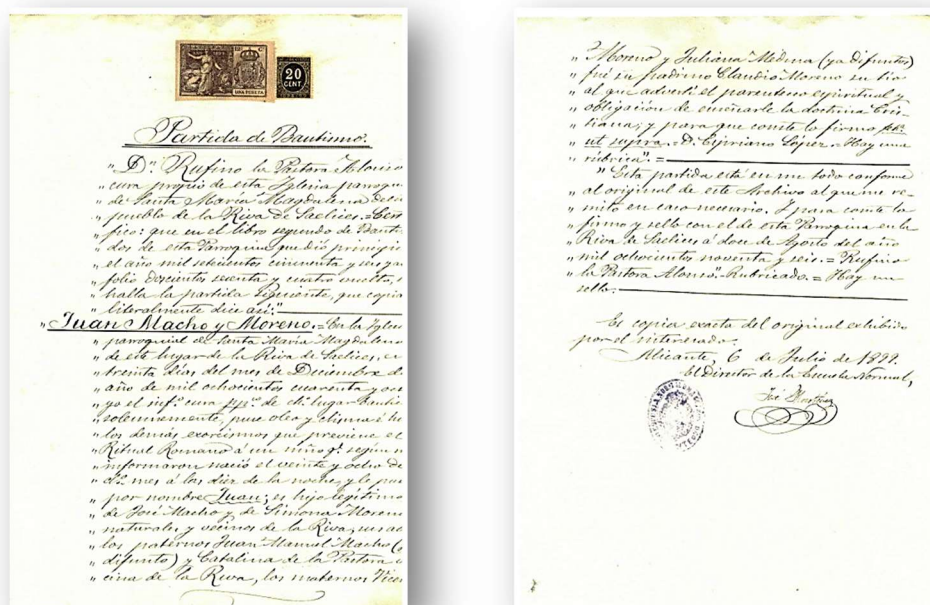 UNA PESETA
20
CENT.
Partida de Bautismo.
" Dn. Rufino la Pastora Alonso
" cura propio de esta Iglesia parroqu
" de Santa María Magdalena de
" pueblo de la Riva de Saelices.=Cert
" fico: que en el libro segundo de Bauti
" dos de esta Parroquia que dió principio
" el año mil setecientos cincuenta y seis, al
" folio doscientos sesenta y cuatro vuelto,
" halla la partida siguiente, que copia
" literalmente dice así:"
" Juan Macho y Moreno.=En la Igles
" parroquial de Santa María Magdalena
" de este lugar de la Riva de Saelices, a
" treinta días del mes de Diciembre de
" año de mil ochocientos cuarenta y
" yo el infº. cura ppº. de dº. lugar
" solemnemente, puse oleo y chisma é hi
" los demás exorcismos que previene el
" Ritual Romano á un niño qº. según
" informaron nació el veinte y ocho de
" dº. mes á las diez de la noche, y le pu
" por nombre Juan; es hijo legítimo
" de José Macho y de Simona Moreno
" naturales y vecinos de la Riva, sus
" los paternos Juan Manuel Macho (
" difunto) y Catalina de la Pastora
" cina de la Riva, los maternos Vice
" Moreno y Juliana Medina (ya difuntos)
" fué su padrino Claudio Moreno su tio
" al que advertí el parentesco espiritual y
" obligación de enseñarle la doctrina Cris-
" tiana; y para que conste lo firmo
" ut supra.=D. Cipriano López.=Hay una
" rúbrica".=
" Esta partida está en un todo conforme
" al original de este Archivo al que me re-
" mito en caso necesario. Y para conste lo
" firmo y sello con el de esta Parroquia en la
" Riva de Saelices á doce de Agosto del año
" mil ochocientos noventa y seis.= Rufino
" la Pastora Alonso"-Rubricado.= Hay un
" sello.
Es copia exacta del original exhibido
por el interesado.
Alicante, 6 de Julio de 1899.
El Director de la Escuela Normal,
José